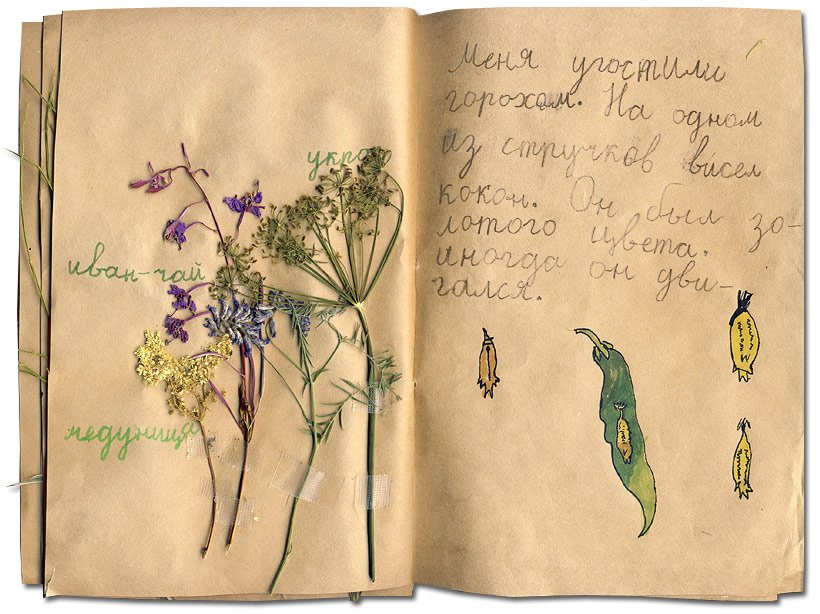 укроп
иван-чай
медуница
Меня угостили
горохом. На одном
из стручков висел
кокон. Он был зо-
лотого цвета.
иногда он дви-
гался.